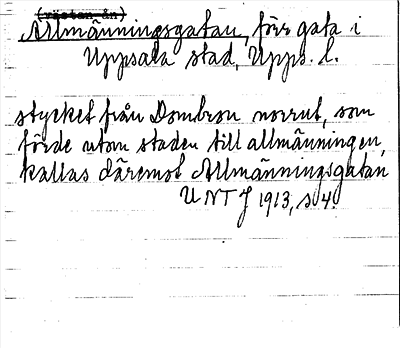 (västan ån)
Allmänningsgatan, förr gata i
Uppsala stad, Upps. l.
stycket från Dombron norrut, som
förde utom staden till allmänningen,
kallas däremot Allmänningsgatan
UNT J 1913, s 4.